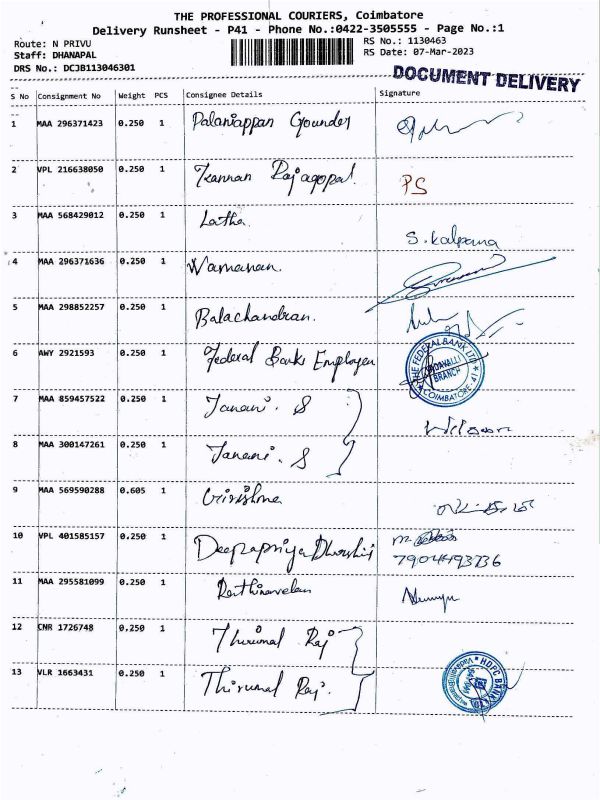 THE PROFESSIONAL COURIERS, Coimbatore
Delivery Runsheet - P41 - Phone No.:0422-3505555 - Page No.:1
Route: N PRIVU
Staff: DHANAPAL
DRS No.: DCJB113046301
RS No.: 1130463
RS Date: 07-Mar-2023
DOCUMENT DELIVERY
S No Consignment No Weight PCS Consignee Details Signature
1 MAA 296371423 0.250 1 Palaniappan Gounder
2 VPL 216638050 0.250 1 Kannan Rajagopal. PS
3 MAA 568429012 0.250 1 Latha S. Kalpana
4 MAA 296371636 0.250 1 Wamanan.
5 MAA 298852257 0.250 1 Balachandran.
6 AWY 2921593 0.250 1 Federal Bank Employee
THE FEDERAL BANK LTD
BRANCH
COIMBATORE-41
7 MAA 859457522 0.250 1 Janani. S
8 MAA 300147261 0.250 1 Janani. S
9 MAA 569590288 0.605 1 Grishma
10 VPL 401585157 0.250 1 Deepapriya Dharshini
7904493736
11 MAA 295581099 0.250 1 Rathinavelan
12 CNR 1726748 0.250 1 Thirumal Raj
13 VLR 1663431 0.250 1 Thirumal Raj.
HDFC BANK LTD